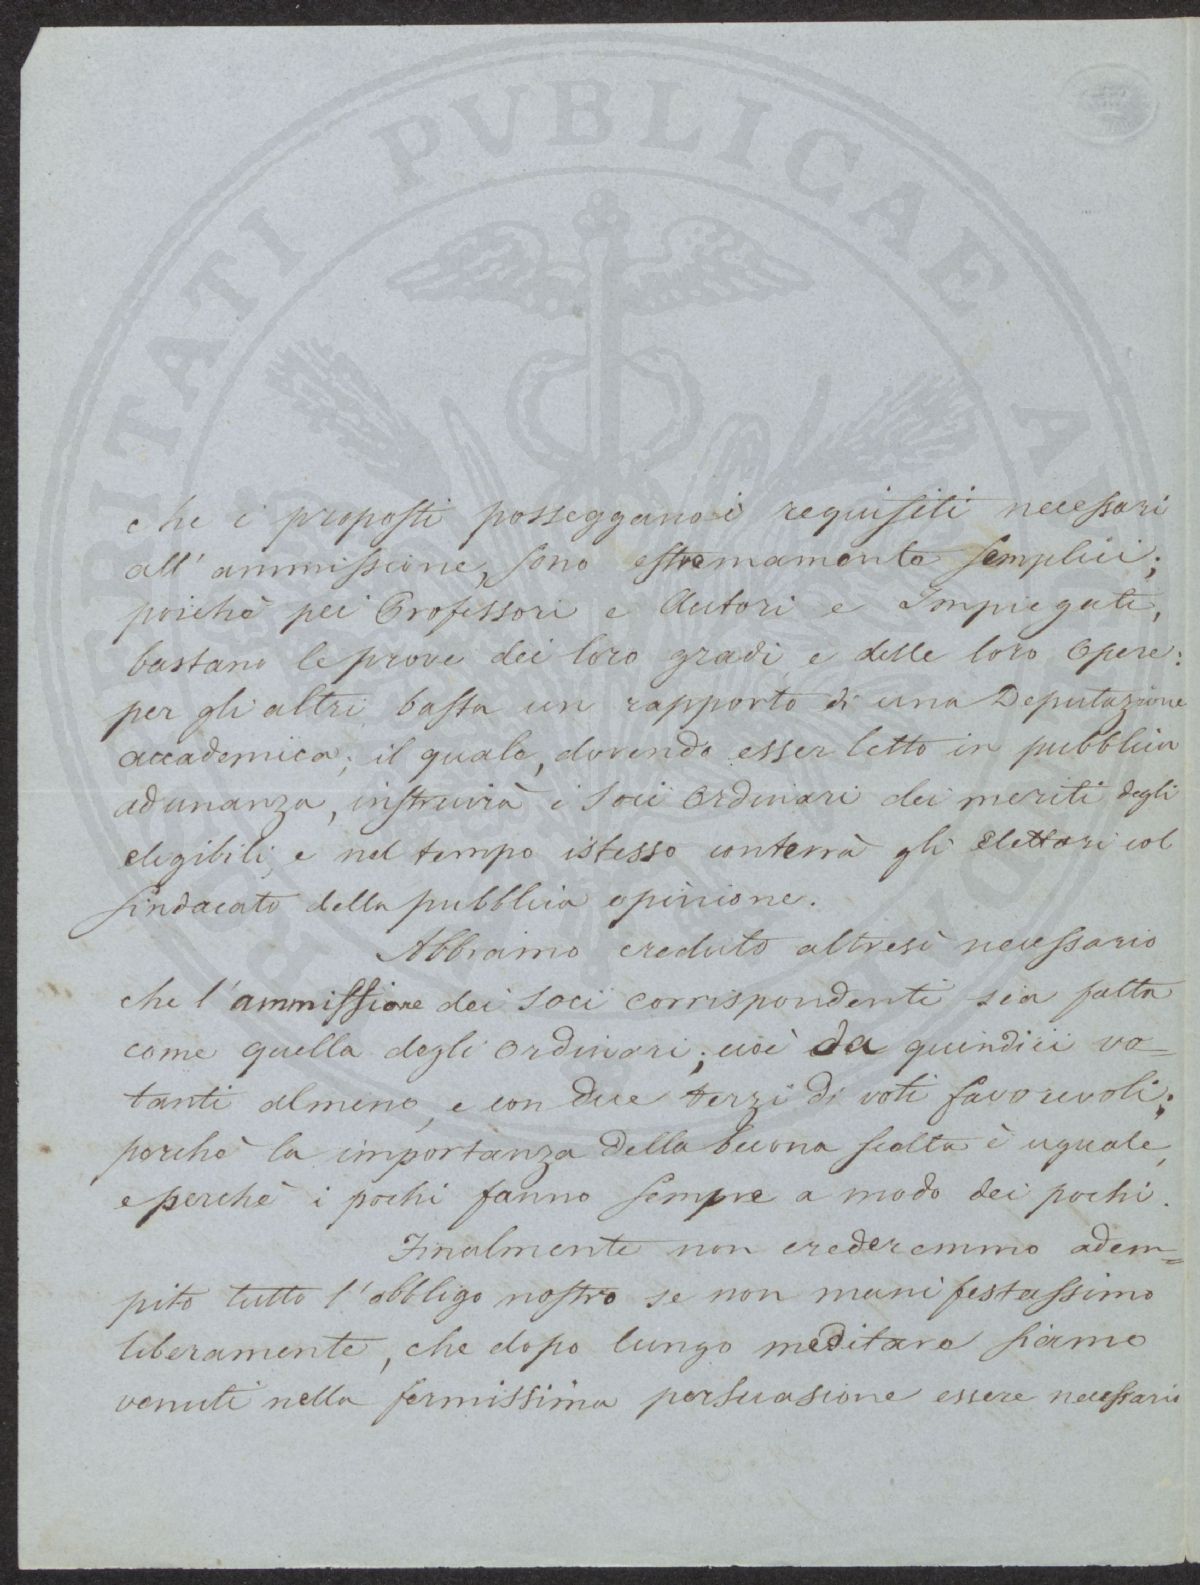 che i proposti posseggano i requisiti necessari
all' ammissione, sono estremamente semplici;
poichè pei Professori e Autori e Impiegati,
bastano le prove dei loro gradi e delle loro Opere:
per gli altri basta un rapporto di una Deputazione
accademica; il quale, dovendo esser letto in pubblica
adunanza, instruirà i Soci Ordinari dei meriti degli
elegibili, e nel tempo istesso conterrà gli Elettori col
sindacato della pubblica opinione.
Abbiamo creduto altresì necessario
che l'ammissione dei Soci corrispondenti sia fatta
come quella degli Ordinari; cioè da quindici vo=
tanti almeno, e con due terzi di voti favorevoli;
perchè la importanza della buona scelta è uguale,
e perchè i pochi fanno sempre a modo dei pochi.
Finalmente non crederemmo adem=
pito tutto l'obbligo nostro se non manifestassimo
liberamente, che dopo lungo meditare siamo
venuti nella fermissima persuasione essere necessario
PUBLICAE